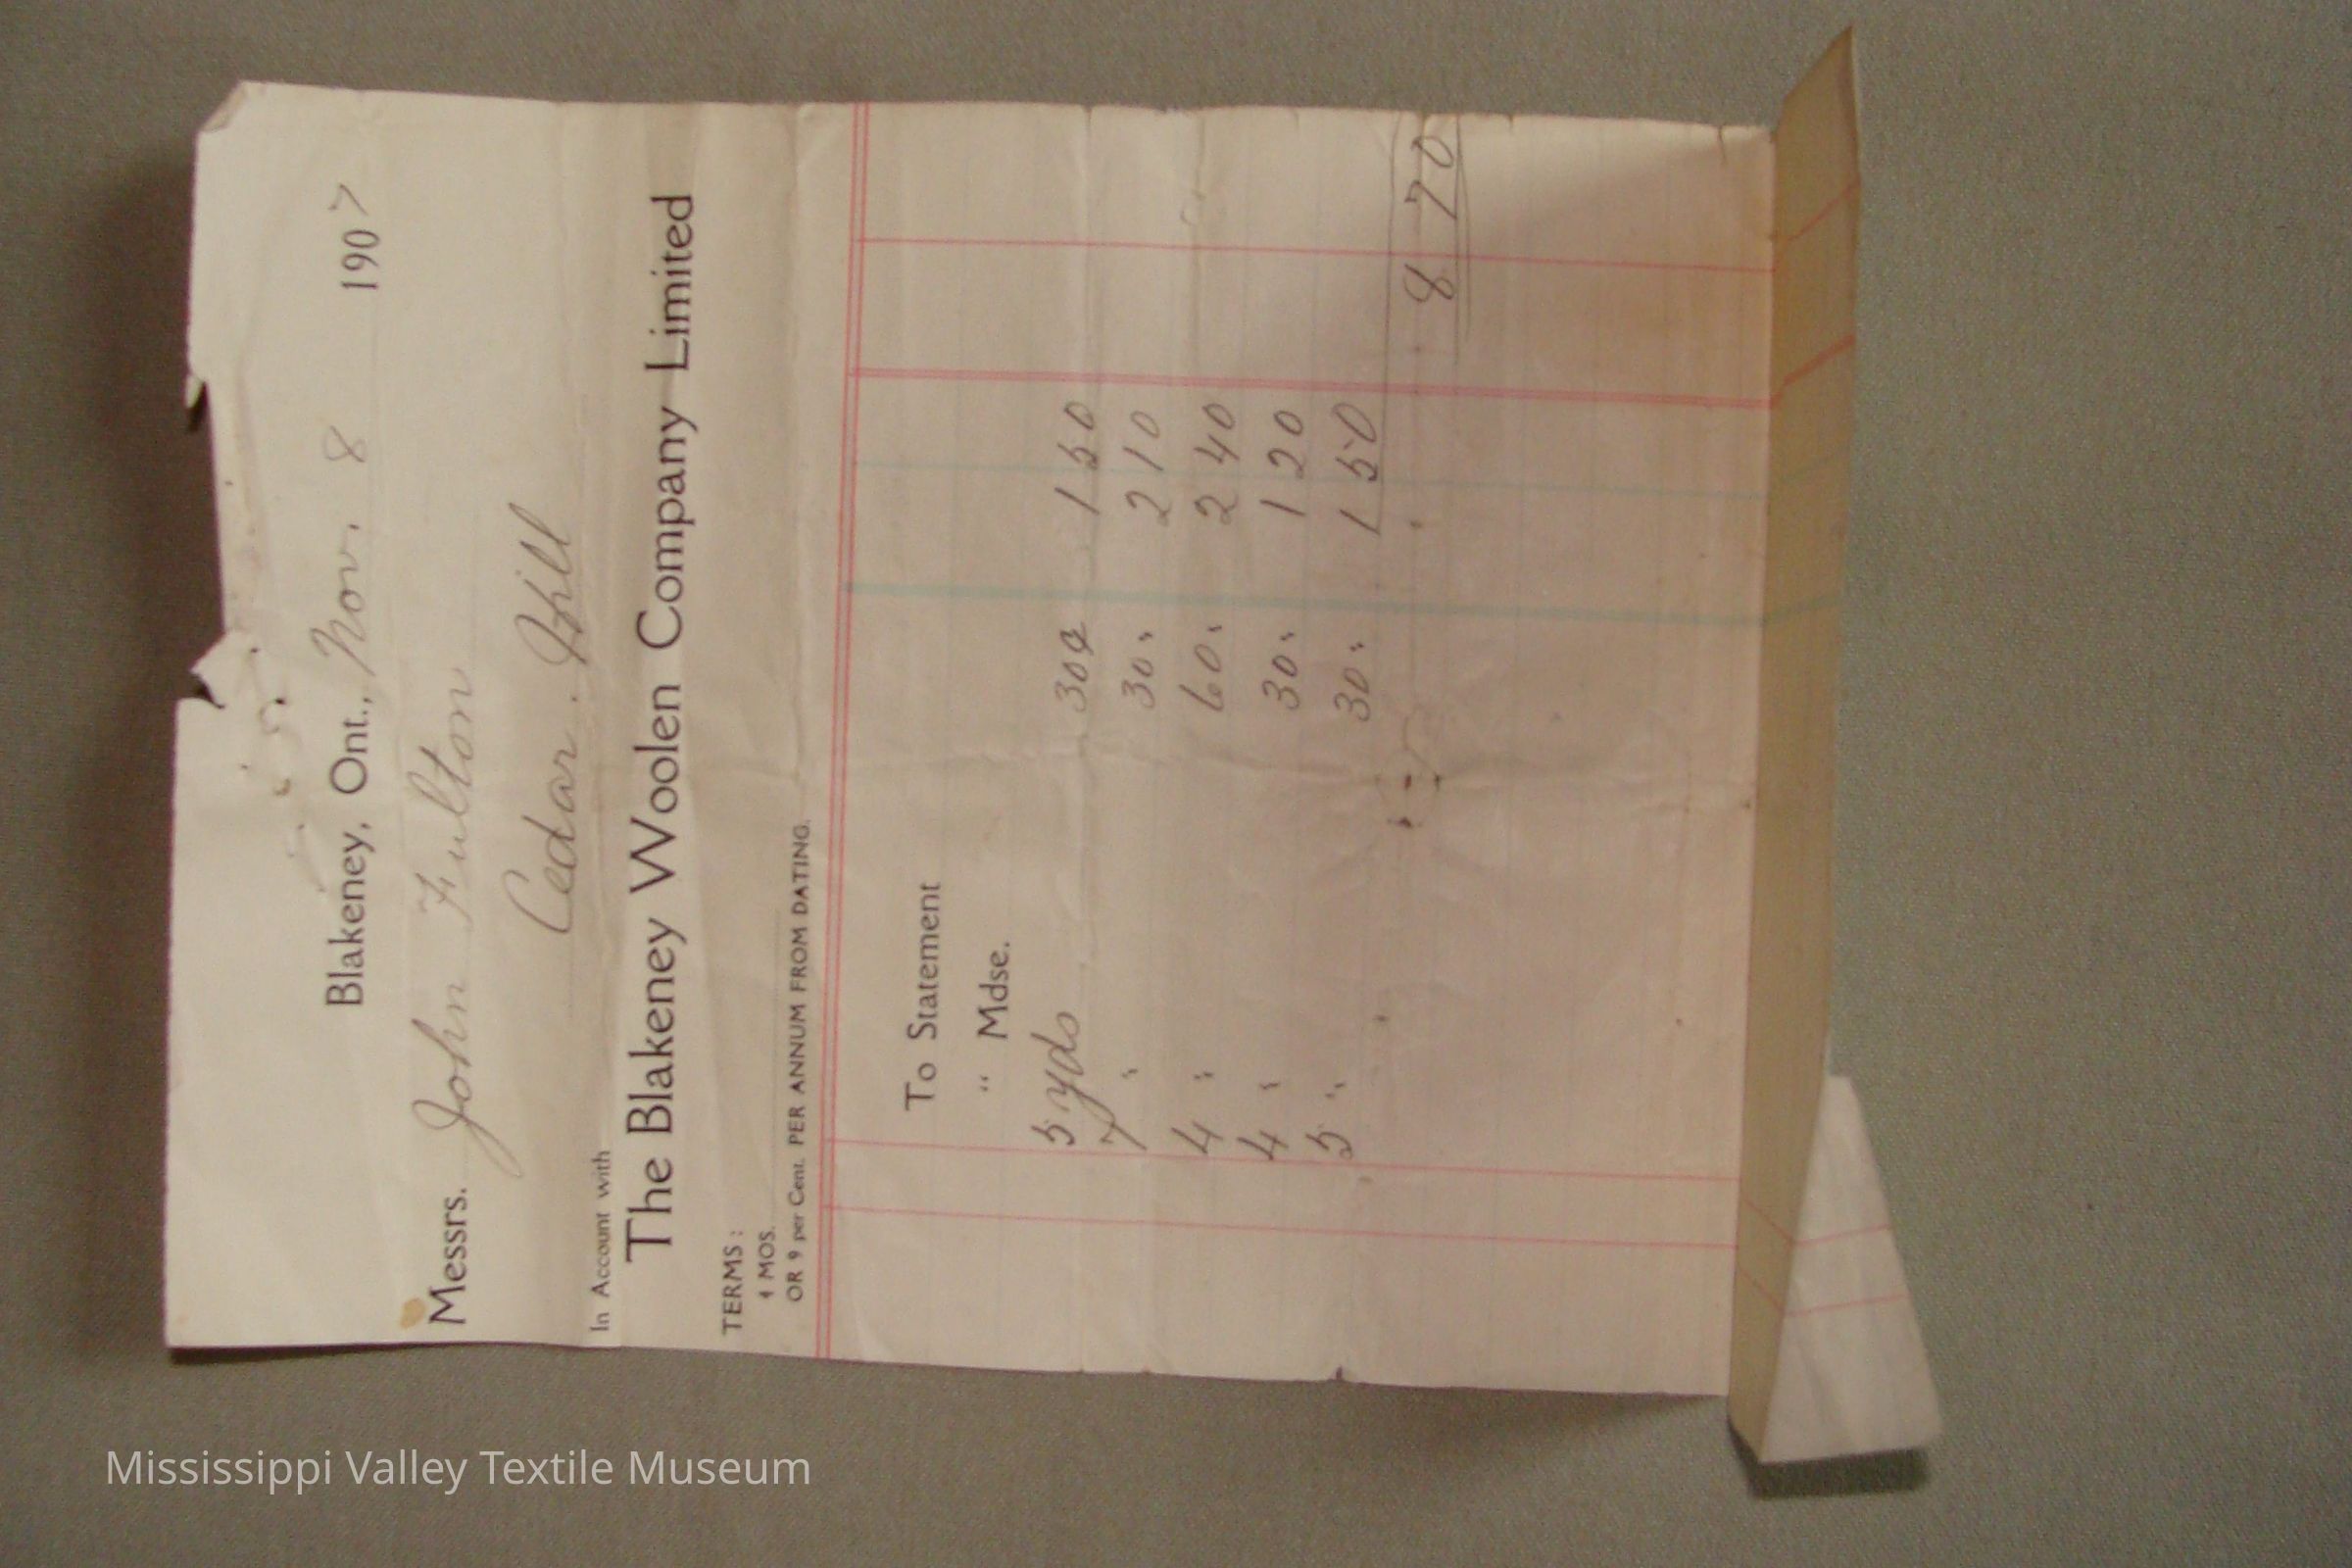 Blakeney, Ont., Nov. 8 1907
Messrs. John Fulton
Cedar Hill
In Account with
The Blakeney Woolen Company Limited
TERMS :
4 MOS.
OR 9 per Cent. PER ANNUM FROM DATING.
To Statement
" Mdse.
5 yds 30¢ 1 50
7 " 30 " 2 10
4 " 60 " 2 40
4 " 30 " 1 20
5 " 30 " 1 50
8 70
Mississippi Valley Textile Museum